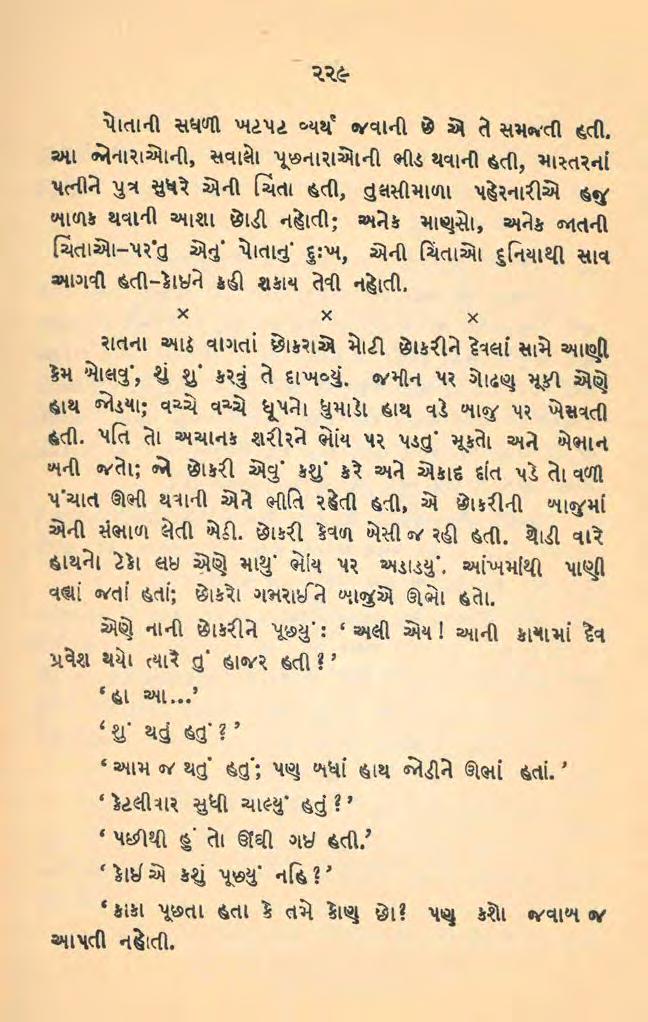 ૨૨૯
પોતાની સઘળી ખટપટ વ્યર્થ જવાની છે એ તે સમજતી હતી.
આ જોનારાઓની, સવાલો પૂછનારાઓની ભીડ થવાની હતી, માસ્તરનાં
પત્નીને પુત્ર સુધરે એની ચિંતા હતી, તુલસીમાળા પહેરનારીએ હજુ
બાળક થવાની આશા છોડી નહોતી; અનેક માણસો, અનેક જાતની
ચિંતાઓ–પરંતુ એનું પોતાનું દુઃખ, એની ચિંતાઓ દુનિયાથી સાવ
આગવી હતી–કોઇને કહી શકાય તેવી નહોતી.
× × ×
રાતના આઠ વાગતાં છોકરાએ મોટી છોકરીને દેવલાં સામે આણી
કેમ બોલવું, શું શું કરવું તે દાખવ્યું. જમીન પર ગોઢણ મૂકી એણે
હાથ જોડયા; વચ્ચે વચ્ચે ધૂપનો ધુમાડો હાથ વડે બાજુ પર ખેસવતી
હતી. પતિ તો અચાનક શરીરને ભોંય પર પડતું મૂકતો અને બેભાન
બની જતો; જો છોકરી એવું કશું કરે અને એકાદ દાંત પડે તો વળી
પંચાત ઊભી થવાની એને ભીતિ રહેતી હતી, એ છોકરીની બાજુમાં
એની સંભાળ લેતી બેઠી. છોકરી કેવળ બેસી જ રહી હતી. થોડી વારે
હાથનો ટેકો લઇ એણે માથું ભોંય પર અડાડયું. આંખમાંથી પાણી
વહ્યાં જતાં હતાં; છોકરો ગભરાઈને બાજુએ ઊભો હતો.
એણે નાની છોકરીને પૂછયું : ‘ અલી એય ! આની કાયામાં દેવ
પ્રવેશ થયો ત્યારે તું હાજર હતી ? ’
‘ હા આ...’
‘ શું થતું હતું ? ’
‘ આમ જ થતું હતું; પણ બધાં હાથ જોડીને ઊભાં હતાં. ’
‘ કેટલીવાર સુધી ચાલ્યું હતું ? ’
‘ પછીથી હું તો ઊંઘી ગઇ હતી.’
‘ કોઇ એ કશું પૂછયું નહિ ? ’
‘ કાકા પૂછતા હતા કે તમે કોણ છો? પણ કશો જવાબ જ
આપતી નહોતી.